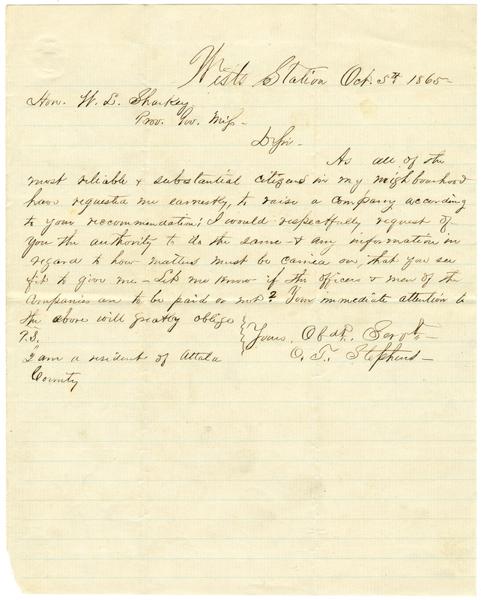 Wests Station Oct. 5th 1865
Hon. W. L. Sharkey
Prov. Gov. Miss.
D Sir
As all of the
most reliable & substantial citizens in my neighbourhood
have requested me earnestly, to raise a Company according
to your reccommendation; I would respectfully request of
you the authority to do the same & any information in
regard to how matters must be carried on, that you see
fit to give me - Let me know if the officers & men of the
Companies are to be paid or not? Your immediate attention to
the above will greatly oblige
Yours, Obdt. Servt.
O. T. Stepherd
P.S.
I am a resident of Attala
County